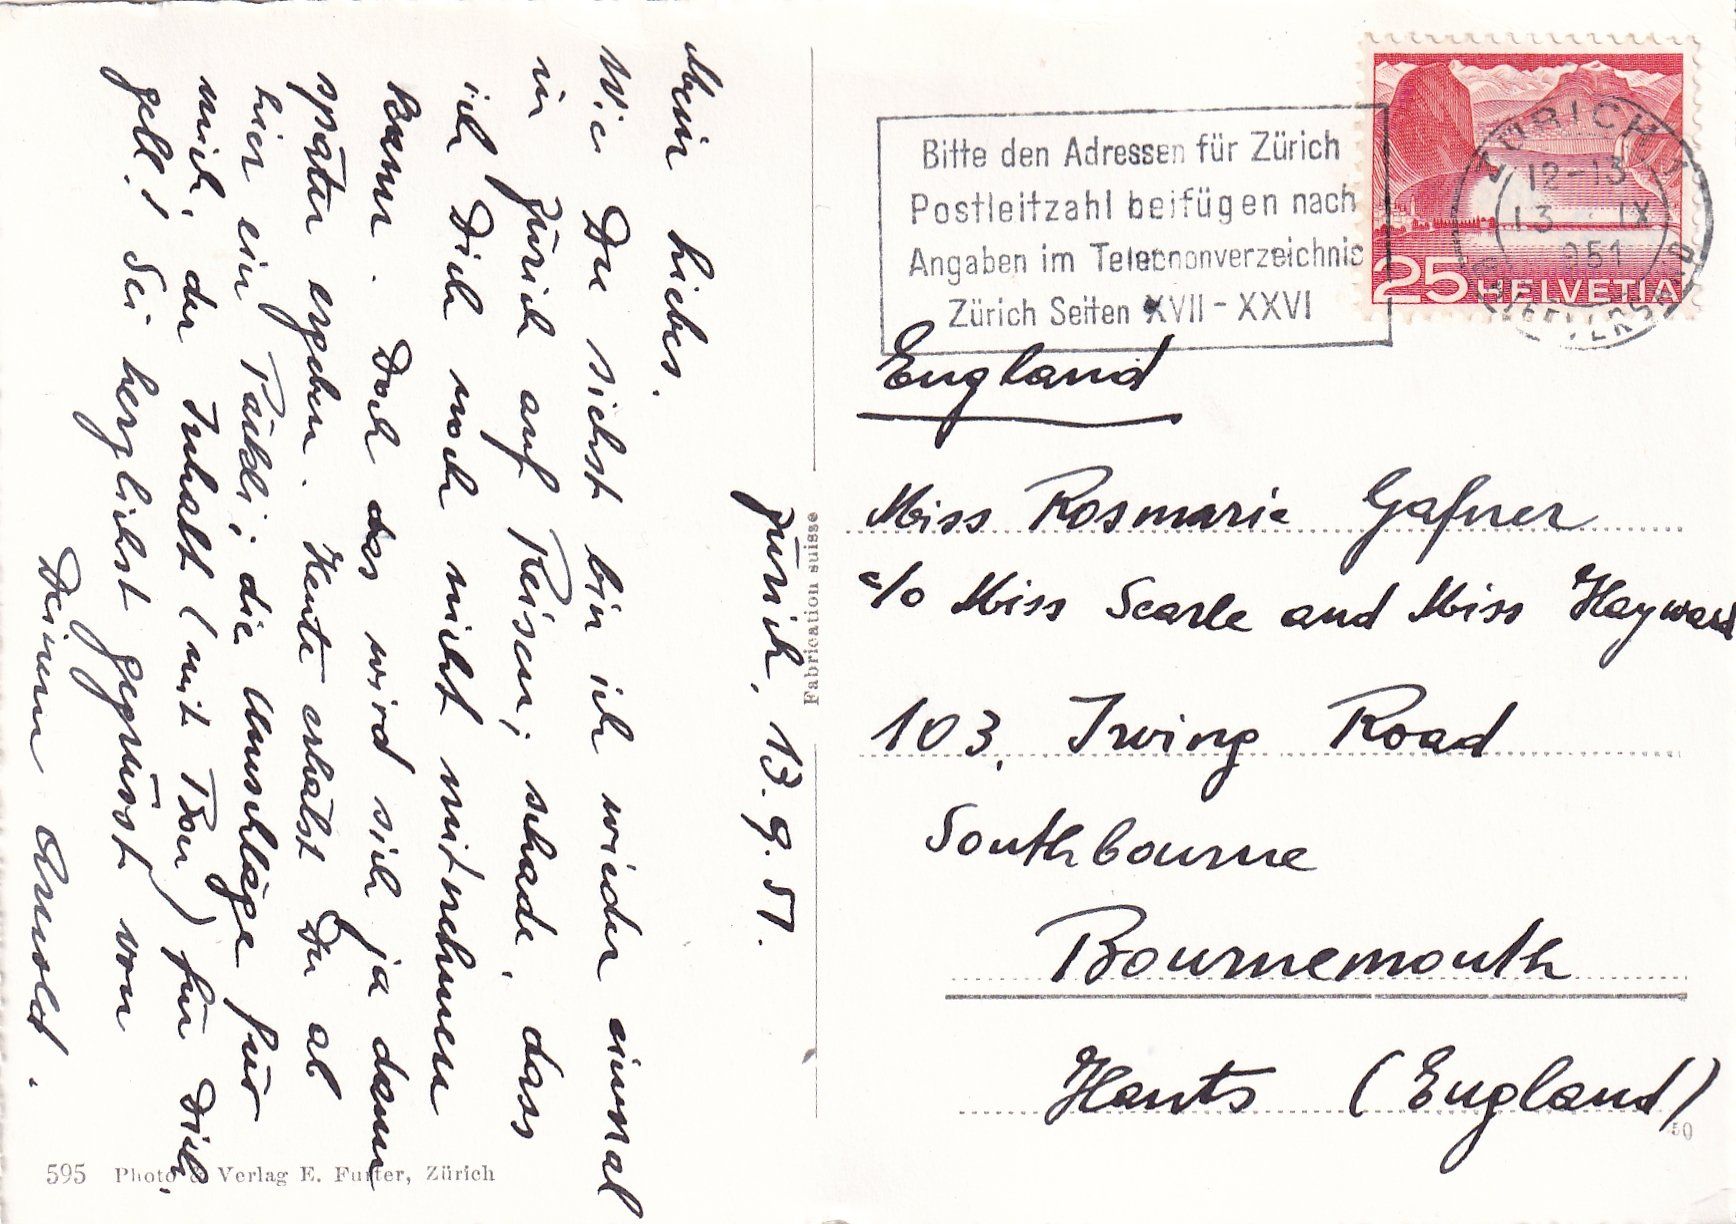 Zürich, 13.9.51.
Mein liebes.
Wie Du siehst bin ich wieder einmal
in Zürich auf Reisen; schade, dass
ich Dich noch nicht mitnehmen
kann. Doch das wird sich ja dann
später ergeben. Heute erhälst Du ab
hier ein Päckli; die Umschläge für
mich, der Inhalt (mit Bon) für Dich,
gell! Sei herzlichst gegrüsst von
Deinem Arnold.
595 Photo & Verlag E. Furter, Zürich
Fabrication suisse
Bitte den Adressen für Zürich
Postleitzahl beifügen nach
Angaben im Telephonverzeichnis
Zürich Seiten XVII - XXVI
25 HELVETIA
ZÜRICH
12-13
13 IX
1951
England
Miss Rosmarie Gafner
c/o Miss Searle and Miss Hayward
103, Irving Road
Southbourne
Bournemouth
Hants (England)
50